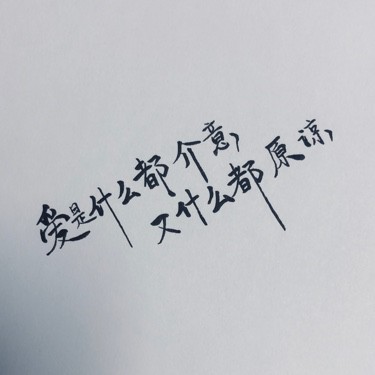 爱是什么都介意
又什么都原谅